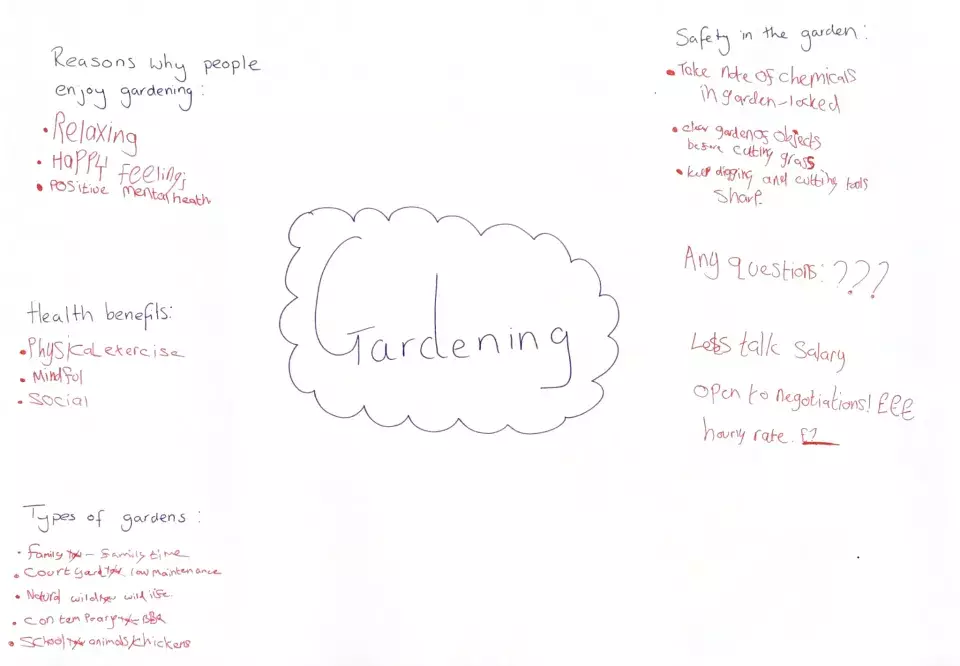 Reasons why people
enjoy gardening:
• Relaxing
• Happy feelings
• Positive mental heath
Health benefits:
• Physical exercise
• Mindful
• Social
Types of gardens:
• family - family time
• Court yard low maintenance
• Natural wild life
• Contemporary - BBQ
• School animals/chickens
Gardening
Safety in the garden:
• Take note of chemicals
in garden-locked
• clear garden of objects
before cutting grass
• keep digging and cutting tools
sharp.
Any questions: ???
Less talk Salary
open to negotiations! £££
hourly rate. £?